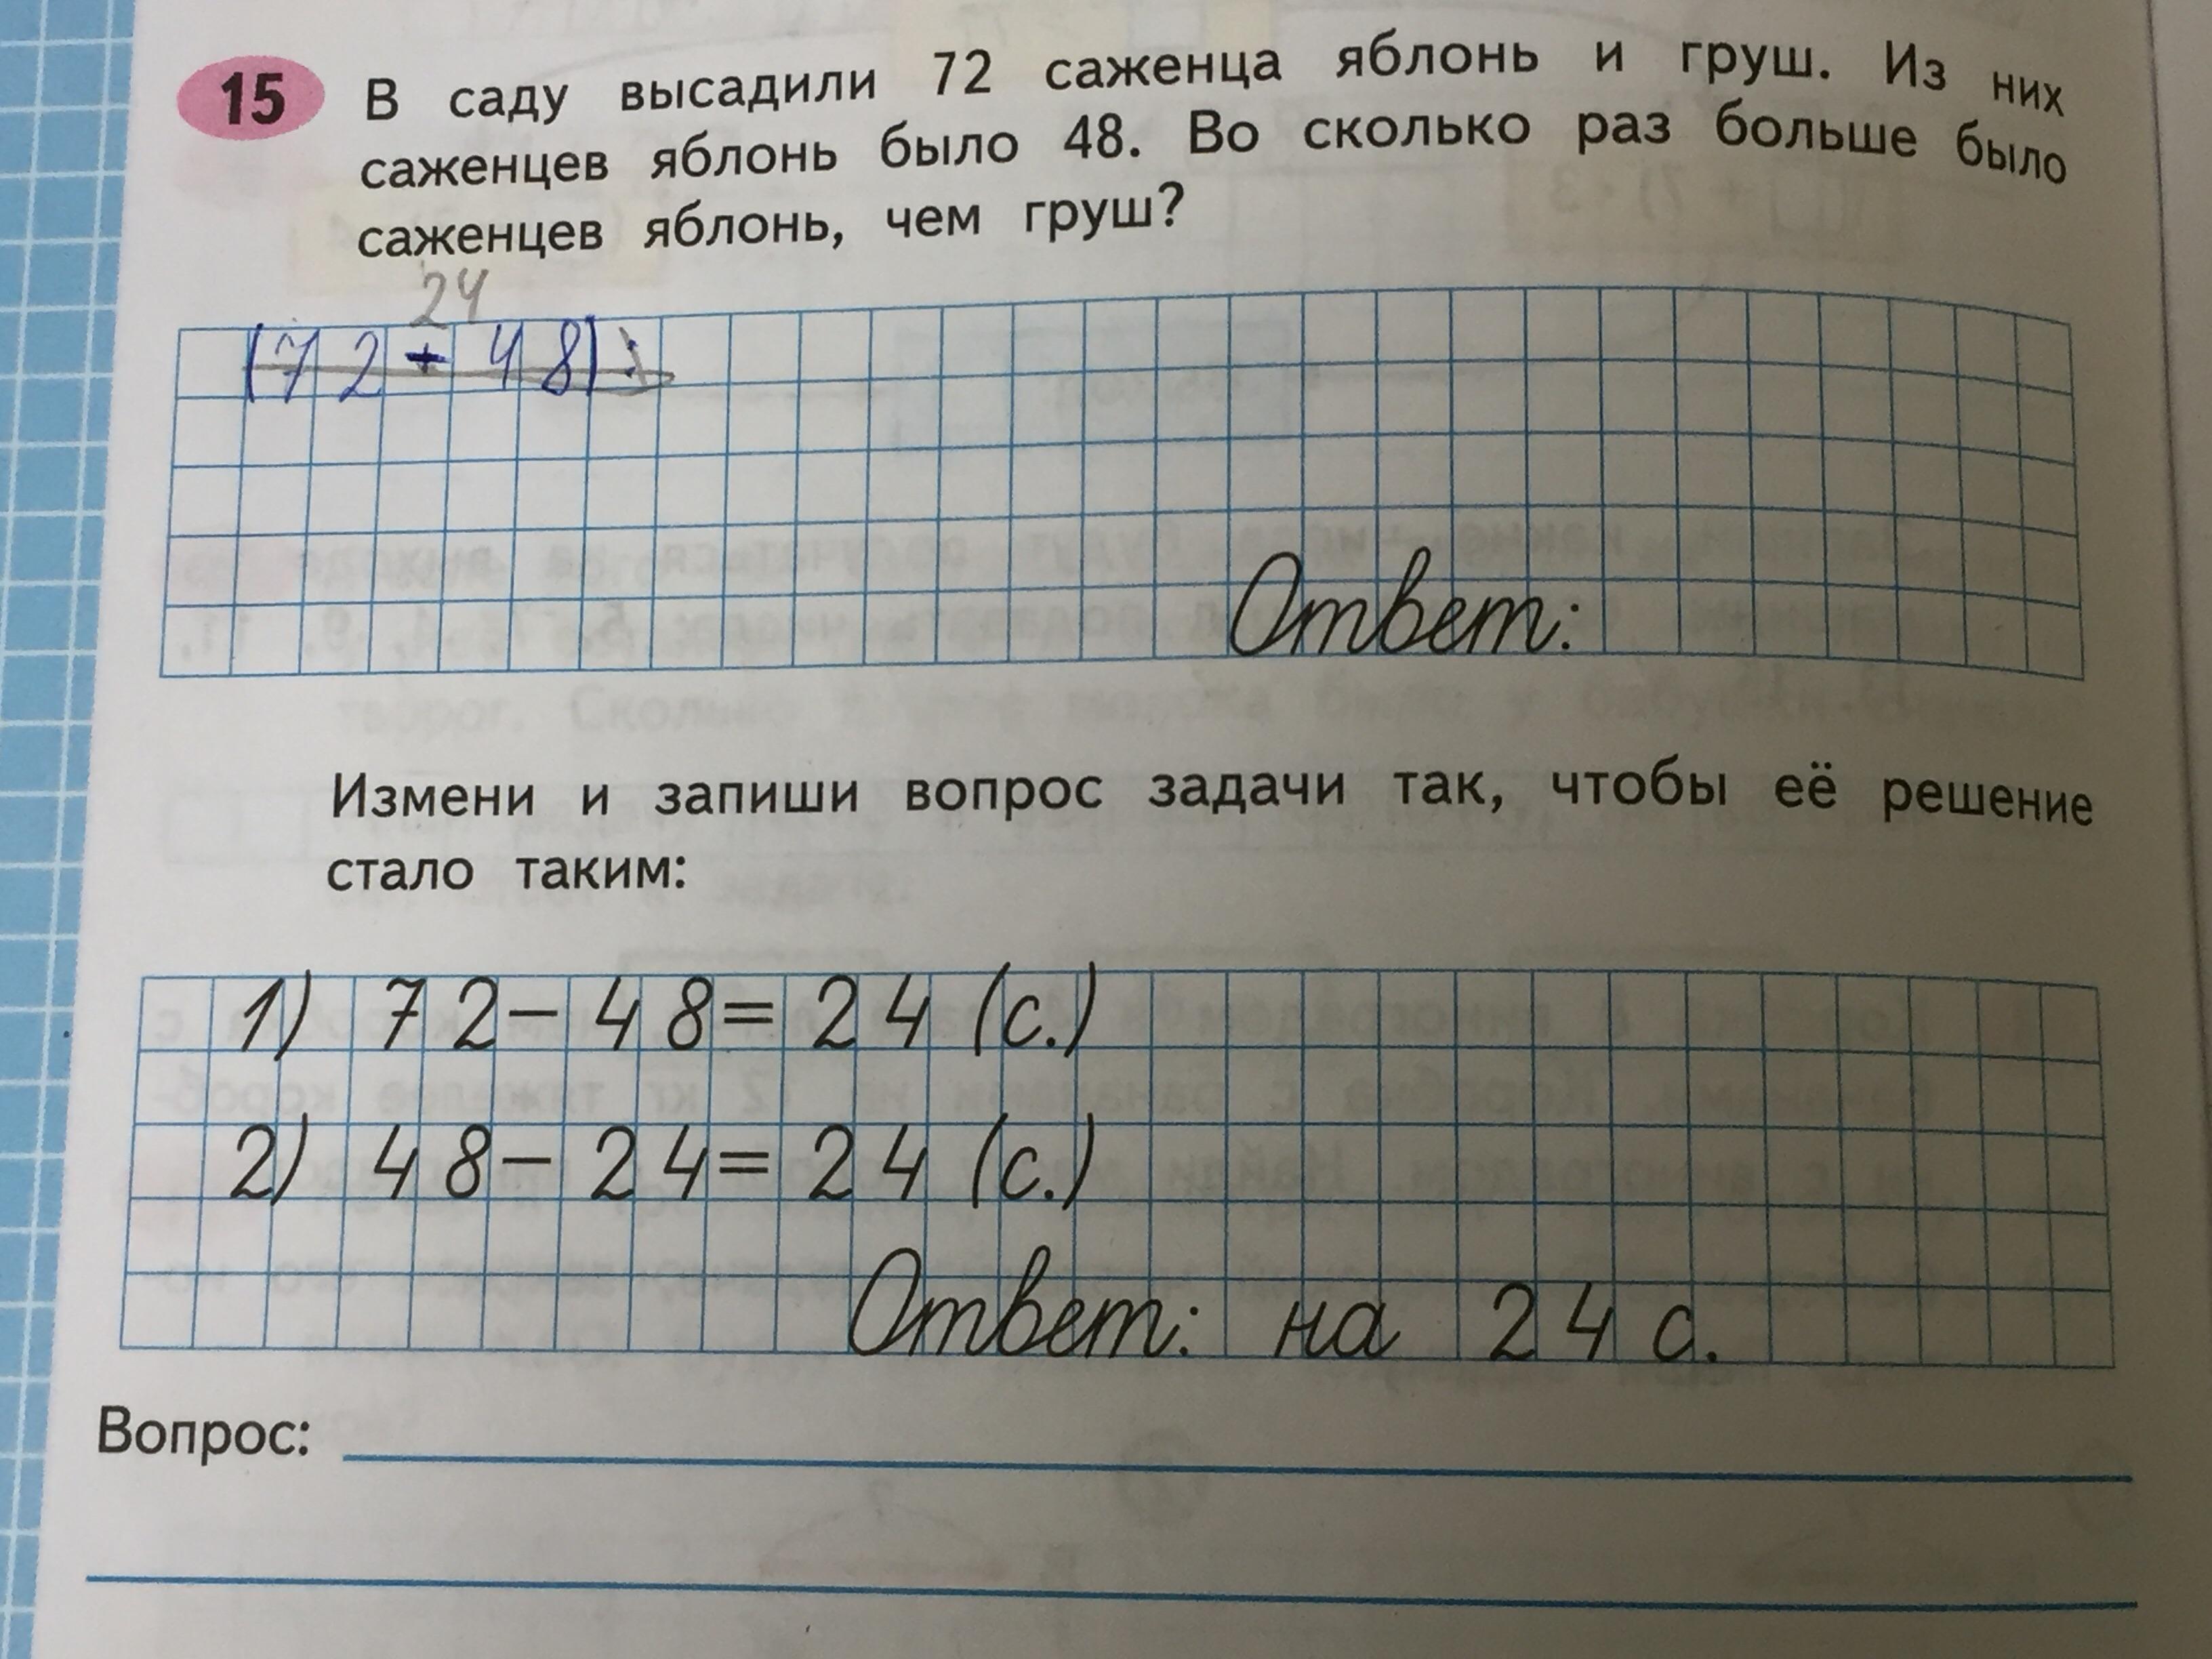 15 В саду высадили 72 саженца яблонь и груш. Из них
саженцев яблонь было 48. Во сколько раз больше было
саженцев яблонь, чем груш?
24
(72 - 48) :
Ответ:
Измени и запиши вопрос задачи так, чтобы её решение
стало таким:
1) 72 - 48 = 24 (с.)
2) 48 - 24 = 24 (с.)
Ответ: на 24 с.
Вопрос: